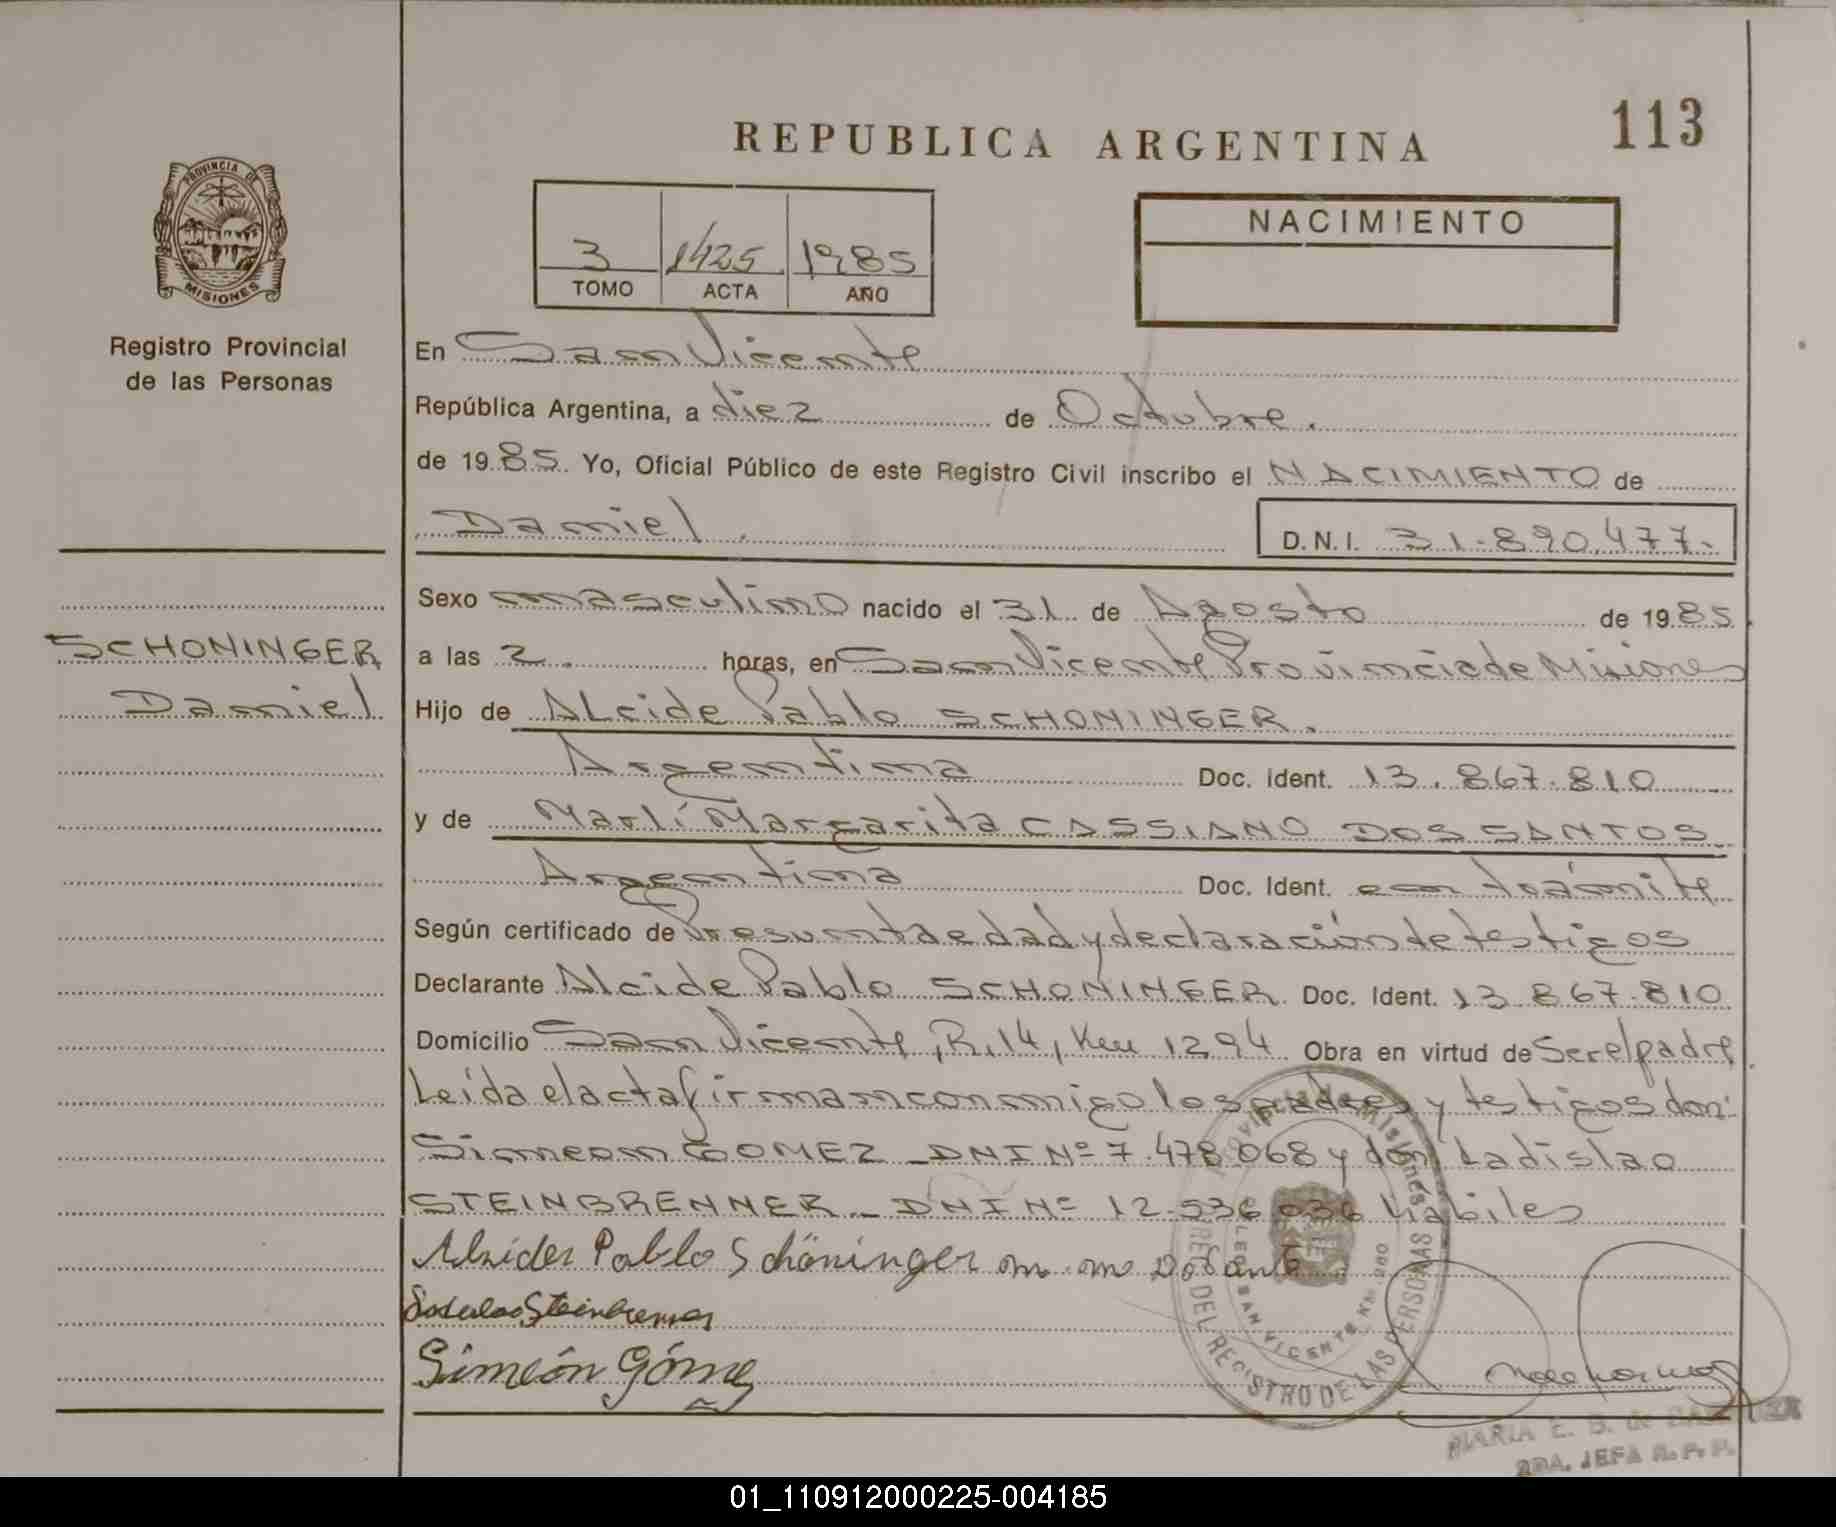 113
REPUBLICA ARGENTINA
PROVINCIA DE
MISIONES
Registro Provincial
de las Personas
3 1425 1985
TOMO ACTA AÑO
NACIMIENTO
En San Vicente
República Argentina, a diez de Octubre.
de 1985. Yo, Oficial Público de este Registro Civil inscribo el NACIMIENTO de
Daniel.
D.N.I. 31.890.477.
SCHONINGER
Daniel
Sexo masculino nacido el 31 de Agosto de 1985
a las 2. horas, en San Vicente Provincia de Misiones
Hijo de ALcide Pablo SCHONINGER.
Argentina Doc. Ident. 13.867.810
y de Marlí Margarita CASSIANO DOS SANTOS
Argentina Doc. Ident. en trámite
Según certificado de Presunta edad y declaración de testigos
Declarante Alcide Pablo SCHONINGER Doc. Ident. 13.867.810
Domicilio San Vicente, R.14, Km 1294 Obra en virtud de Ser el padre
Leída el acta firman conmigo los padres y testigos don:
Simeon GOMEZ - DNI Nº 7.478.068 y don Ladislao
STEINBRENNER - DNI Nº 12.536.036 hábiles
Pablo Schöninger
Steinbrenner
Simeón Góme
Provincia de Misiones
DEL REGISTRO DE LAS PERSONAS
SAN VICENTE
MARIA E. B. de
2DA. JEFA R. P. P.
01_110912000225-004185